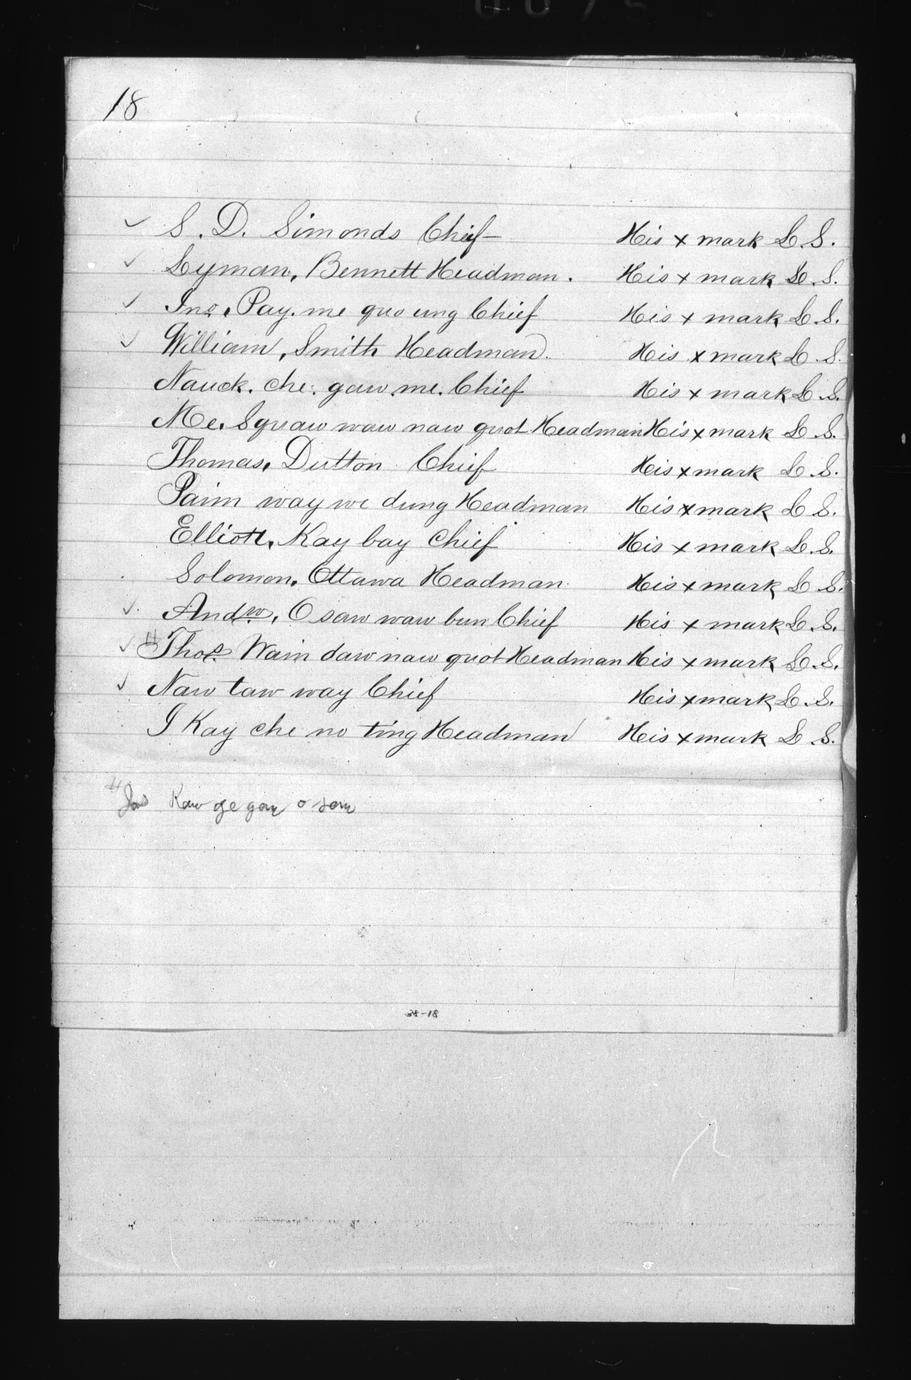 18
✓ S. D. Simonds Chief His x mark L. S.
✓ Lyman, Bennett Headman. His x mark L. S.
✓ Jno, Pay. me quo ung Chief His x mark L. S.
✓ William, Smith Headman. His x mark L. S.
Nauck. che. gaw. me. Chief His x mark L. S.
Me. Squaw waw naw quot Headman His x mark L. S.
Thomas, Dutton Chief His x mark L. S.
Paim way we dung Headman His x mark L. S.
Elliott, Kay bay Chief His x mark L. S.
Solomon, Ottawa Headman His x mark L. S.
✓ Andw, O saw waw bun Chief His x mark L. S.
✓ Thos. Wain daw naw quot Headman His x mark L. S.
✓ Naw taw way Chief His x mark L. S.
I Kay che no ting Headman His x mark L. S.
Kaw ge gay o say
38-18